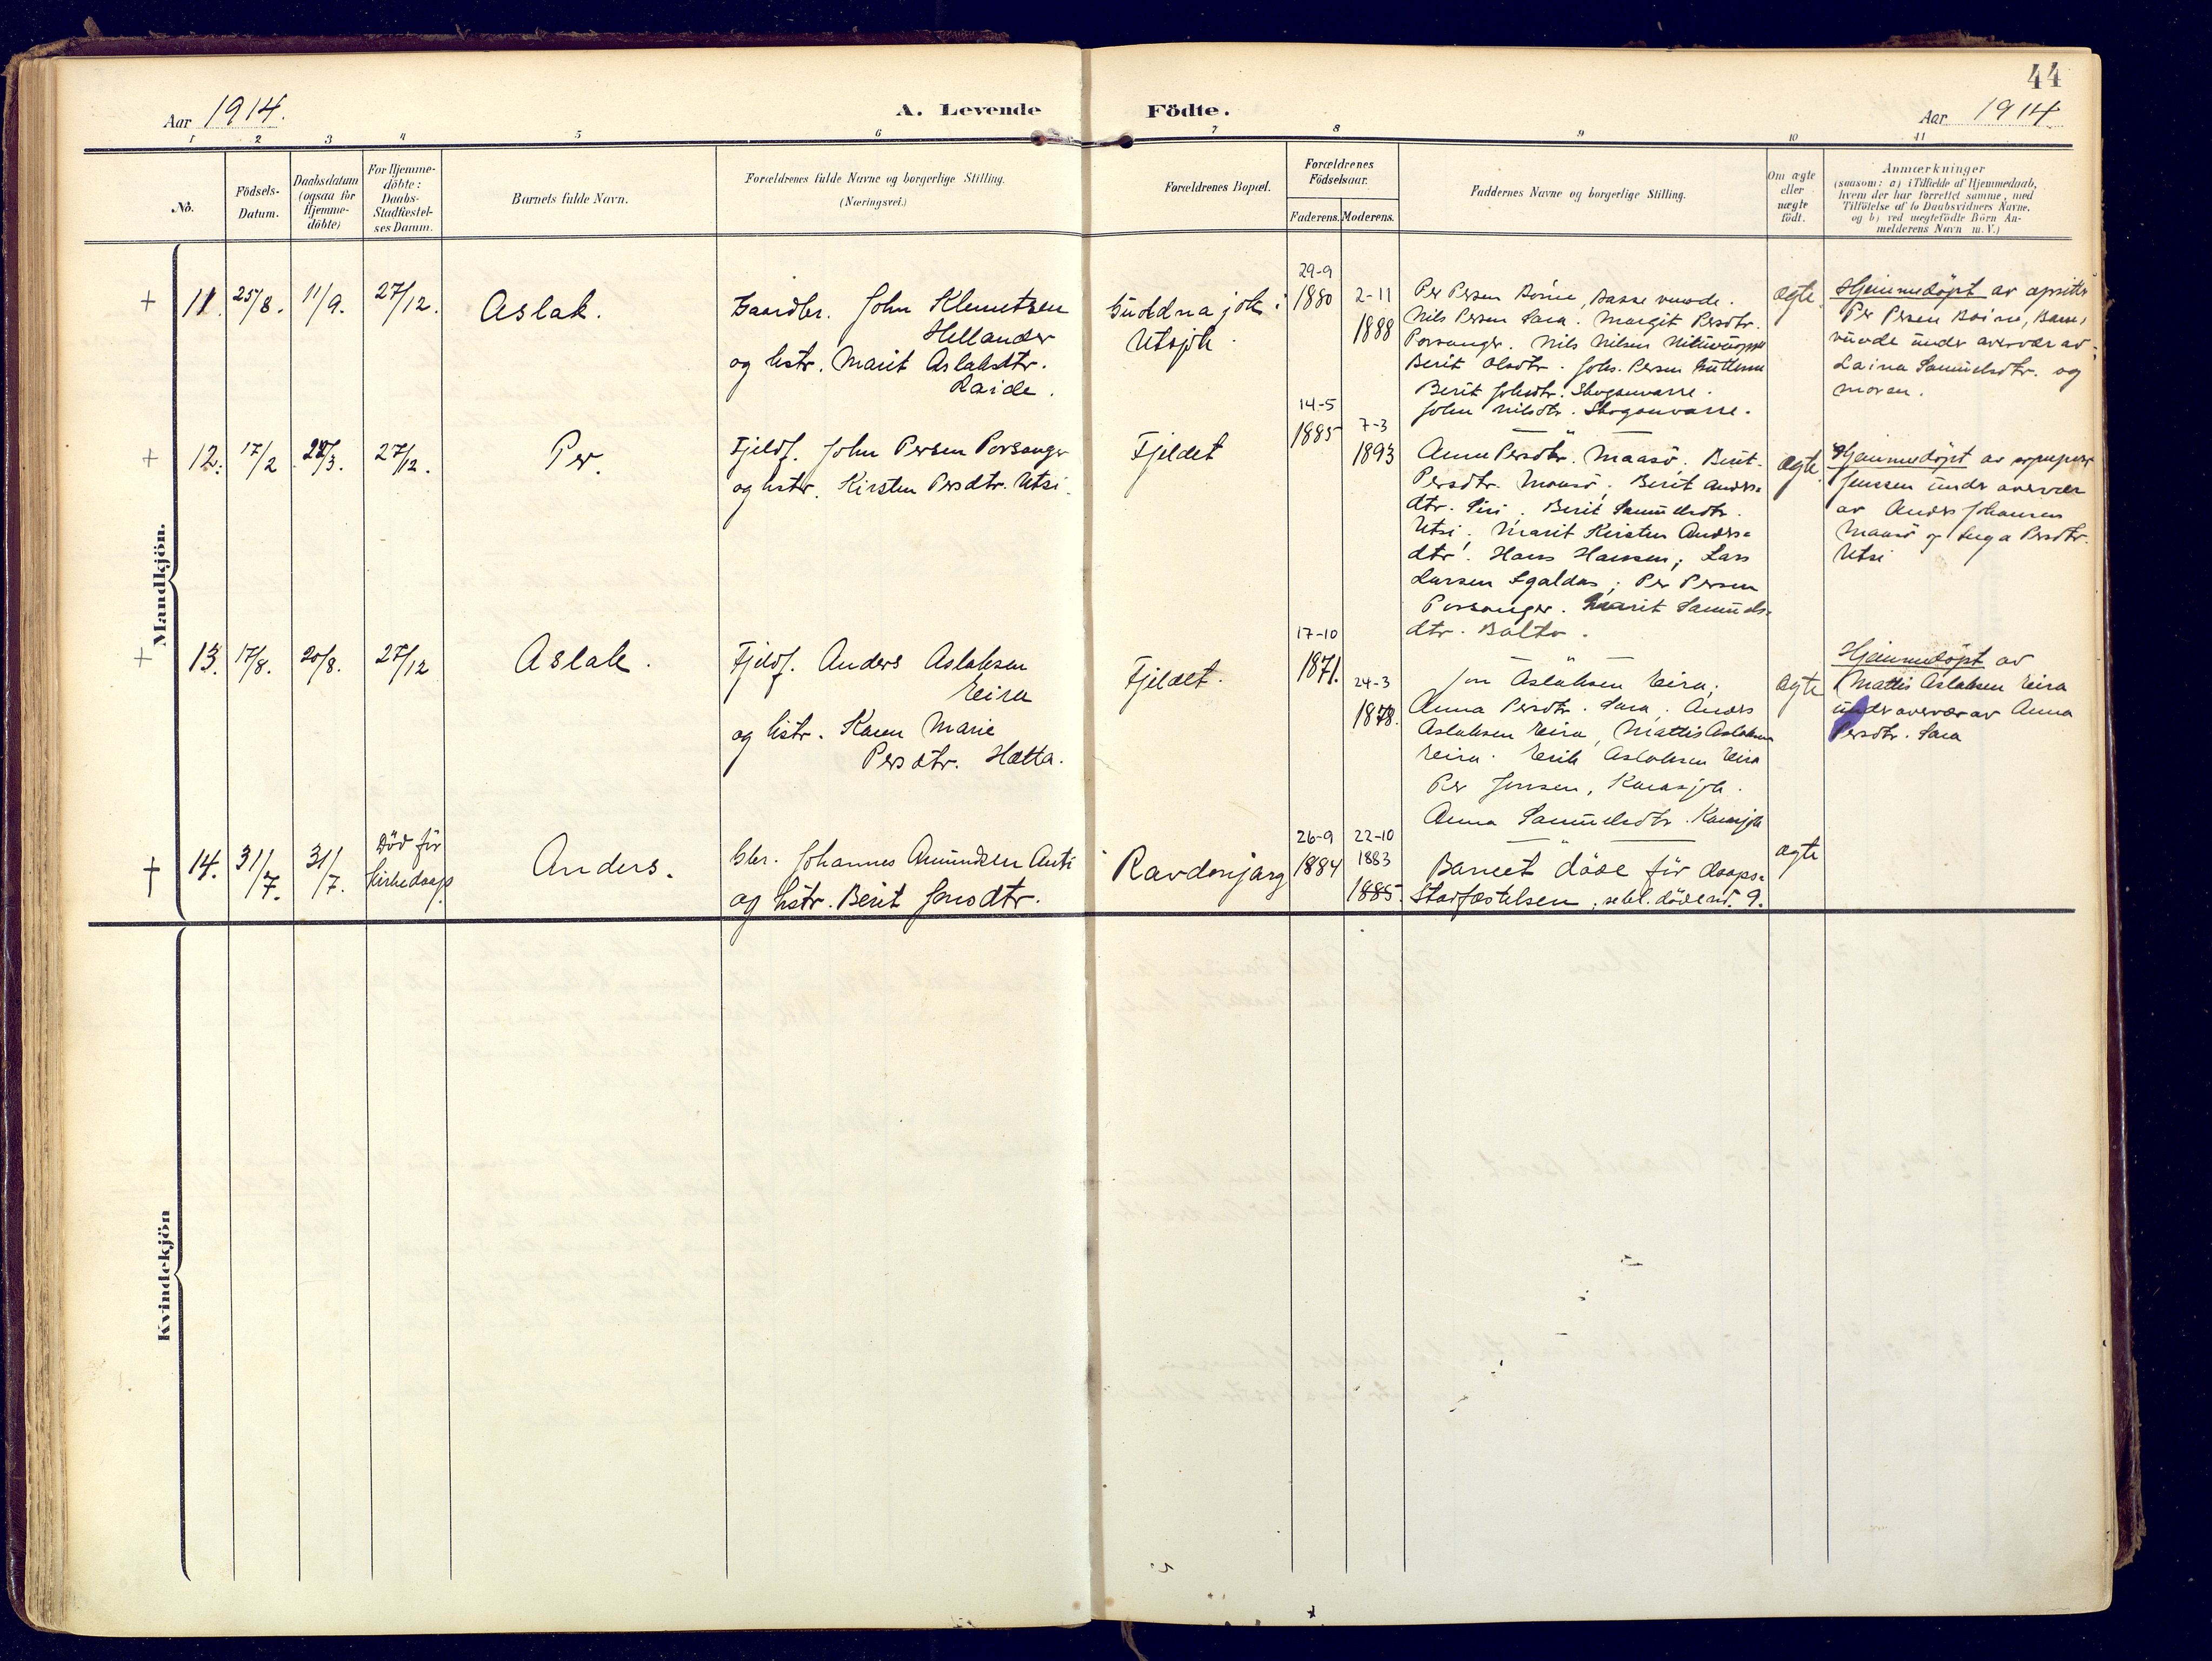 44
Aar 1914.
A. Levende Födte.
Aar 1914
1 2 3 4 5 6 7 8 9 10 11
No.
Födsels-
Datum.
Daabsdatum
(ogsaa for
Hjemme-
döbte)
For Hjemme-
döbte:
Daabs-
Stadfæstel-
ses Datum.
Barnets fulde Navn.
Forældrenes fulde Navne og borgerlige Stilling.
(Næringsvei.)
Forældrenes Bopæl.
Forældrenes
Födselsaar.
Faderens.
Moderens.
Faddernes Navne og borgerlige Stilling.
Om ægte
eller
uægte
födt.
Anmærkninger
(saasom: a) i Tilfælde af Hjemmedaab,
hvem der har forrettet samme, med
Tilföielse af to Daabsvidners Navne,
og b) ved uægtefödte Börn An-
melderens Navn m.V.)
Mandkjön.
+ 11. 25/8. 11/9. 27/12.
Aslak.
Gaardbr. John Klemetsen
Hellander
og hstr. Marit Aslaksdtr.
Laide.
Guoldnajok i
Utsjok.
29-9
1880
2-11
1888
Per Persen Boine, Basse vuovde.
Nils Persen Sara. Margit Persdtr.
Porsanger. Nils Nilsen
Berit Olsdtr. Johs. Persen Guttorm
Berit Johsdtr. Skoganvarre.
John Nilsdtr. Skoganvarre.
ægte
Hjemmedöpt av opsitter
Per Persen Boine, Basse,
vuovde under overvær av
Laina Samuelsdtr. og
moren.
+ 12. 17/2 /3. 27/12.
Per.
Fjeldf. John Persen Porsanger
og hstr. Kirsten Persdtr. Utsi.
Fjeldet
14-5
1885
7-3
1893
Anne Persdtr. Maasö. Berit
Persdtr. Maasö. Berit Anders-
dtr. Siri. Berit Samuelsdtr.
Utsi. Marit Kirsten Anders-
dtr. Hans Hansen; Lars
Larsen Sgaldas; Per Persen
Porsanger. Marit Samuels-
dtr. Balto.
ægte
Hjemmedöpt av
Jenssen under overvær
av Anders Johansen
Maasö og Inga Persdtr.
Utsi
+ 13. 17/8. 20/8. 27/12
Aslak.
Fjeldf. Anders Aslaksen
Eira
og hstr. Karen Marie
Persdtr. Hætta.
Fjeldet.
17-10
1871.
24-3
1878.
Jon Aslaksen Eira;
Anna Persdtr. Sara. Anders
Aslaksen Eira, Mattis Aslaksen
Eira. Erik Aslaksen Eira
Per Jonsen, Karasjok.
Anna Samuelsdtr. Karasjok
ægte
Hjemmedöpt av
Mattis Aslaksen Eira
under overvær av Anna
Persdtr. Sara
† 14. 31/7. 31/7.
Död för
kirkedaap.
Anders.
Gbr. Johannes Amundsen Anti
og hstr. Berit Jonsdtr.
Ravdonjarg
26-9
1884
22-10
1883
1885.
Barnet döde för daaps-
stadfæstelsen, se bl. döde nr. 9.
ægte
Kvindekjön